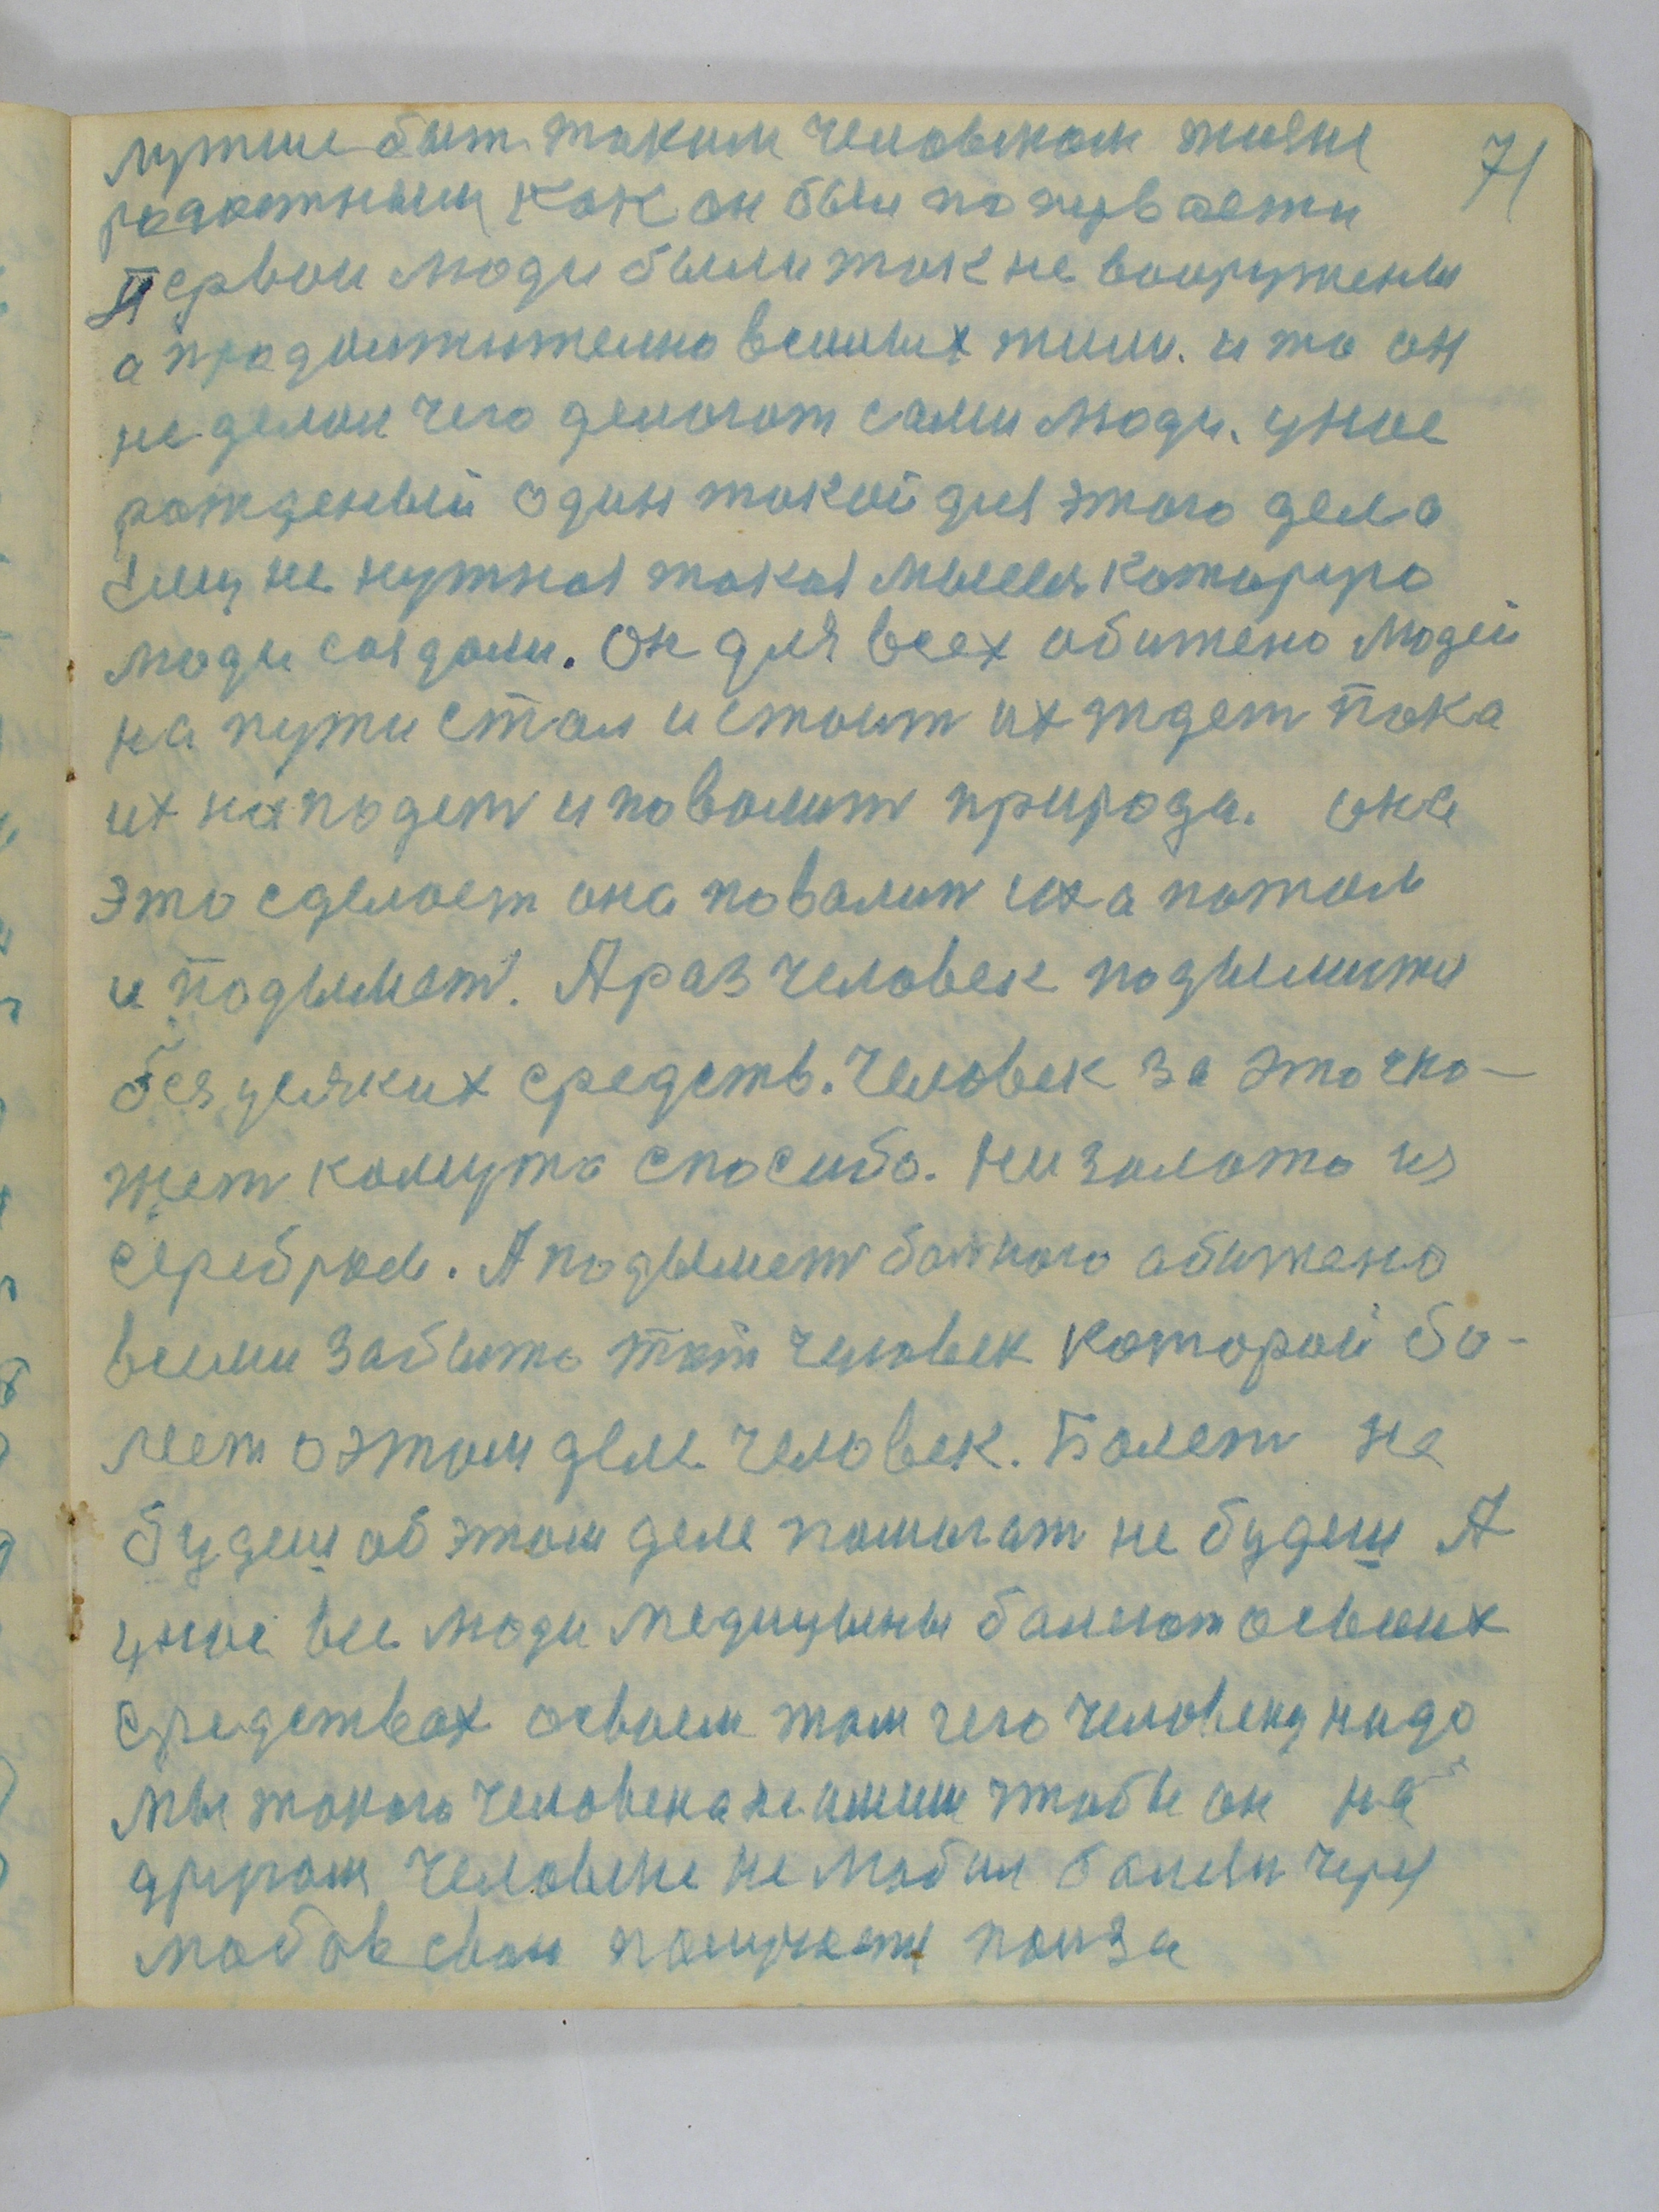 71
лутше быт таким человеком жизне
радостным как он был почуваети
Первои люди были так не вооружены
а продолжително веиных жили. и то он
не делал чего делают сами люди. унас
рожденый один такой для этого дела
Ему не нутная такая мысля которую
люди создали. Он для всех обижено людей
на пути стал и стоит их ждет пока
их нападет и повалит природа. она
это сделает она повалит их а потом
и подымет. А раз человек подымити
без усяких средств. Человек за это ска-
жет комуто спосибо. Ни золото из
серебром. А подымет болного обижено
всеми забыто тот человек которой бо-
леет о этом деле человек. Болет не
будеш об этом деле помогат не будеш А
унас все люди медицыны болеют осваих
средствах осваем том чего человеку надо
мы такого человека не имеим чтобы он на
другом человеке не любил болезн через
любов сваю получаети полза